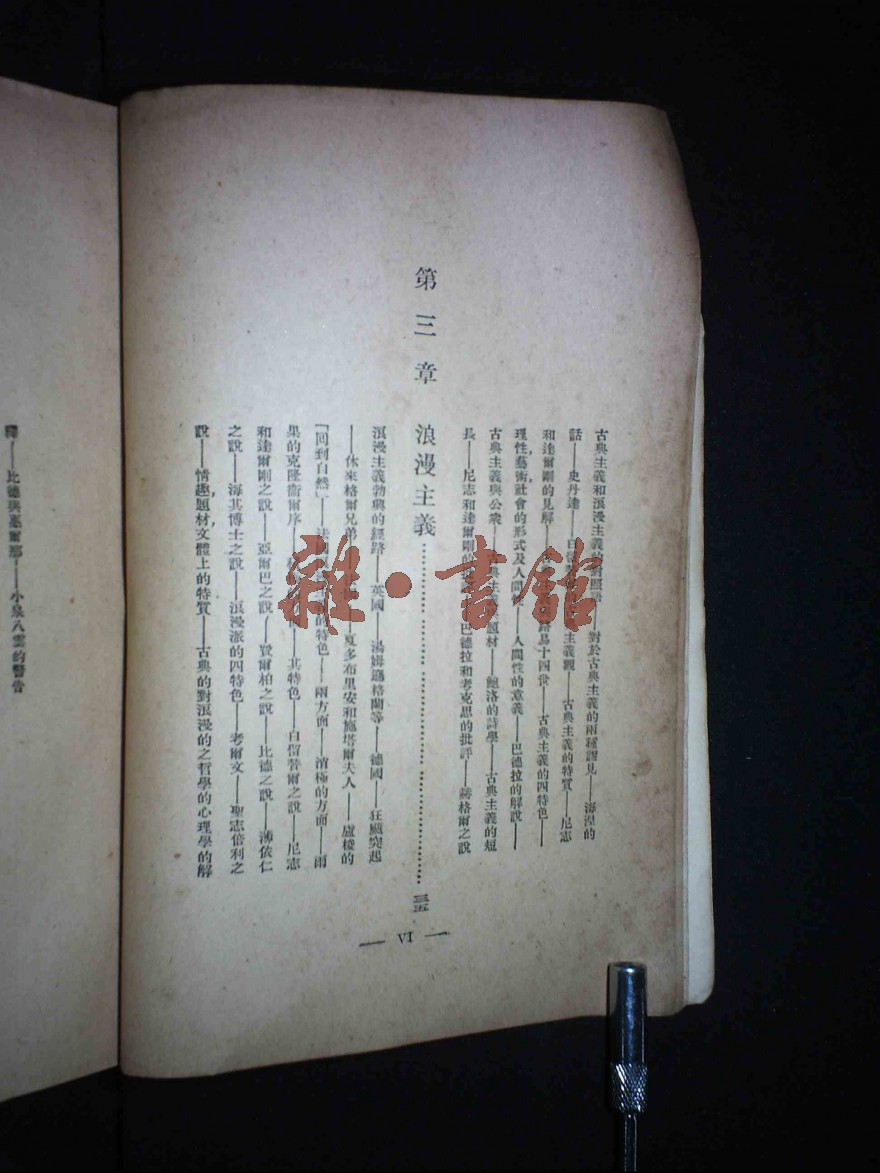 古典主義和浪漫主義的 對於古典主義的兩種謬見——海涅的
話——史丹達——白 主義觀——古典主義的特質——尼志
和達爾剛的見解—— 路易十四世——古典主義的四特色——
理性,藝術社會的形式及人間性——人間性的意義——巴德拉的解說——
古典主義與公衆—— 典主義 題材——鮑洛的詩學——古典主義的短
長——尼志和達爾剛的 巴德拉和考克思的批評——赫格爾之說
第三章 浪漫主義…………三五
浪漫主義勃興的經路——英國——湯姆遜格蘭等——德國——狂飈突起
——休來格爾兄弟 夏多布里安和施塔爾夫人——盧梭的
「回到自然」——法國 的特色——兩方面——消極的方面——雨
果的克隆衞爾序—— 其特色——白留菩爾之說——尼志
和達爾剛之說——亞爾巴之說——賀爾柏之說——比德之說——薄依仁
之說——海其博士之說——浪漫派的四特色——考爾文——聖志倍利之
說——情趣,題材,文體上的特質——古典的對浪漫的之哲學的心理學的解
— VI —
釋——比德與塞爾那——小泉八雲的警告
雜·書館